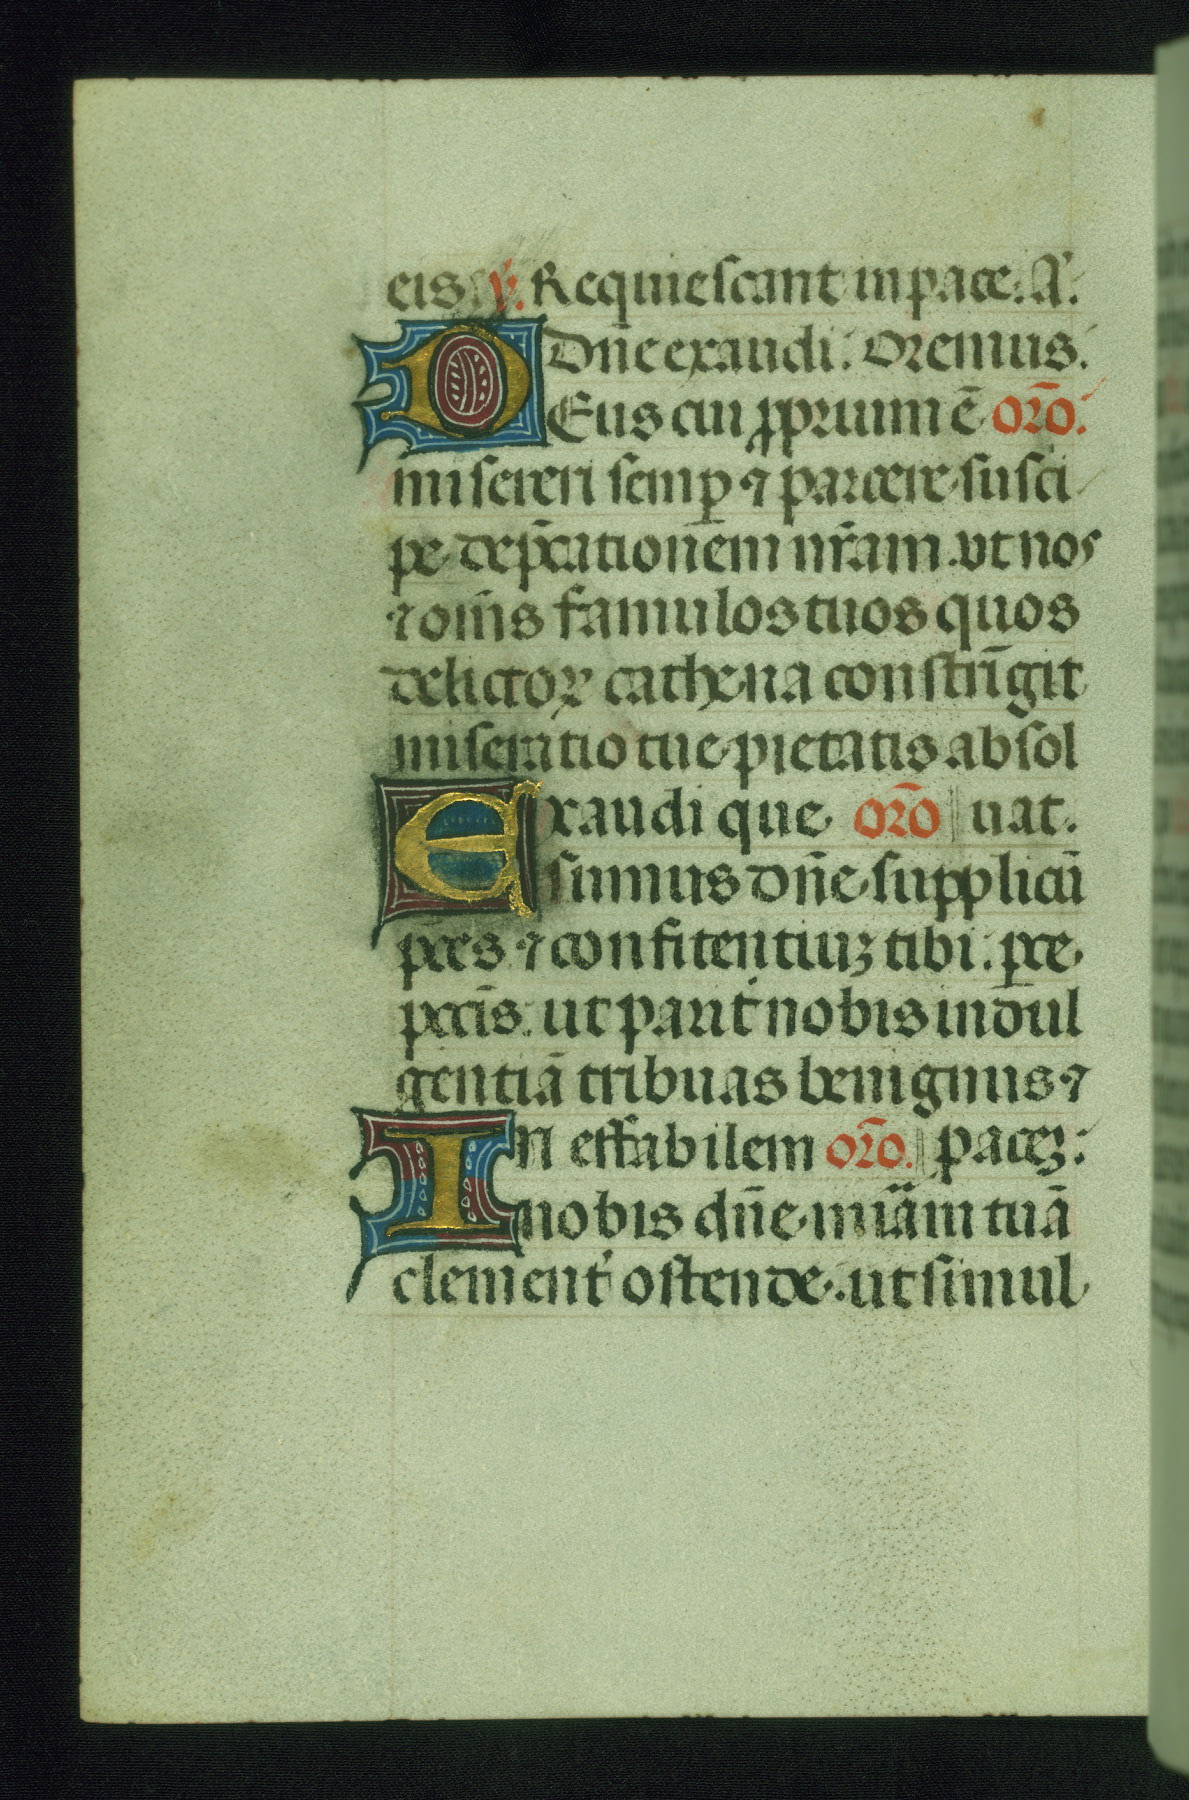 eis. ℣. Requiescant in pace. A͛.
Dn̄e exaudi. Oremus.
DEus cui ꝓprium ē orō.
misereri semꝑ ⁊ parcere susci
pe dep̄cationem nr̄am. ut nos
⁊ om̄s famulos tuos quos
delictoꝝ cathena constrīgit
miseratio tue pietatis absol
Exaudi que orō uat.
sumus dn̄e suppliciū
p̄ces ⁊ confitentiuꝫ tibi. ꝑce
pctīs. ut parit̛ nobis indul
gentiā tribuas benignus ⁊
In effabilem orō. paceꝫ.
nobis dn̄e miām tuā
clement̛ ostende. ut simul